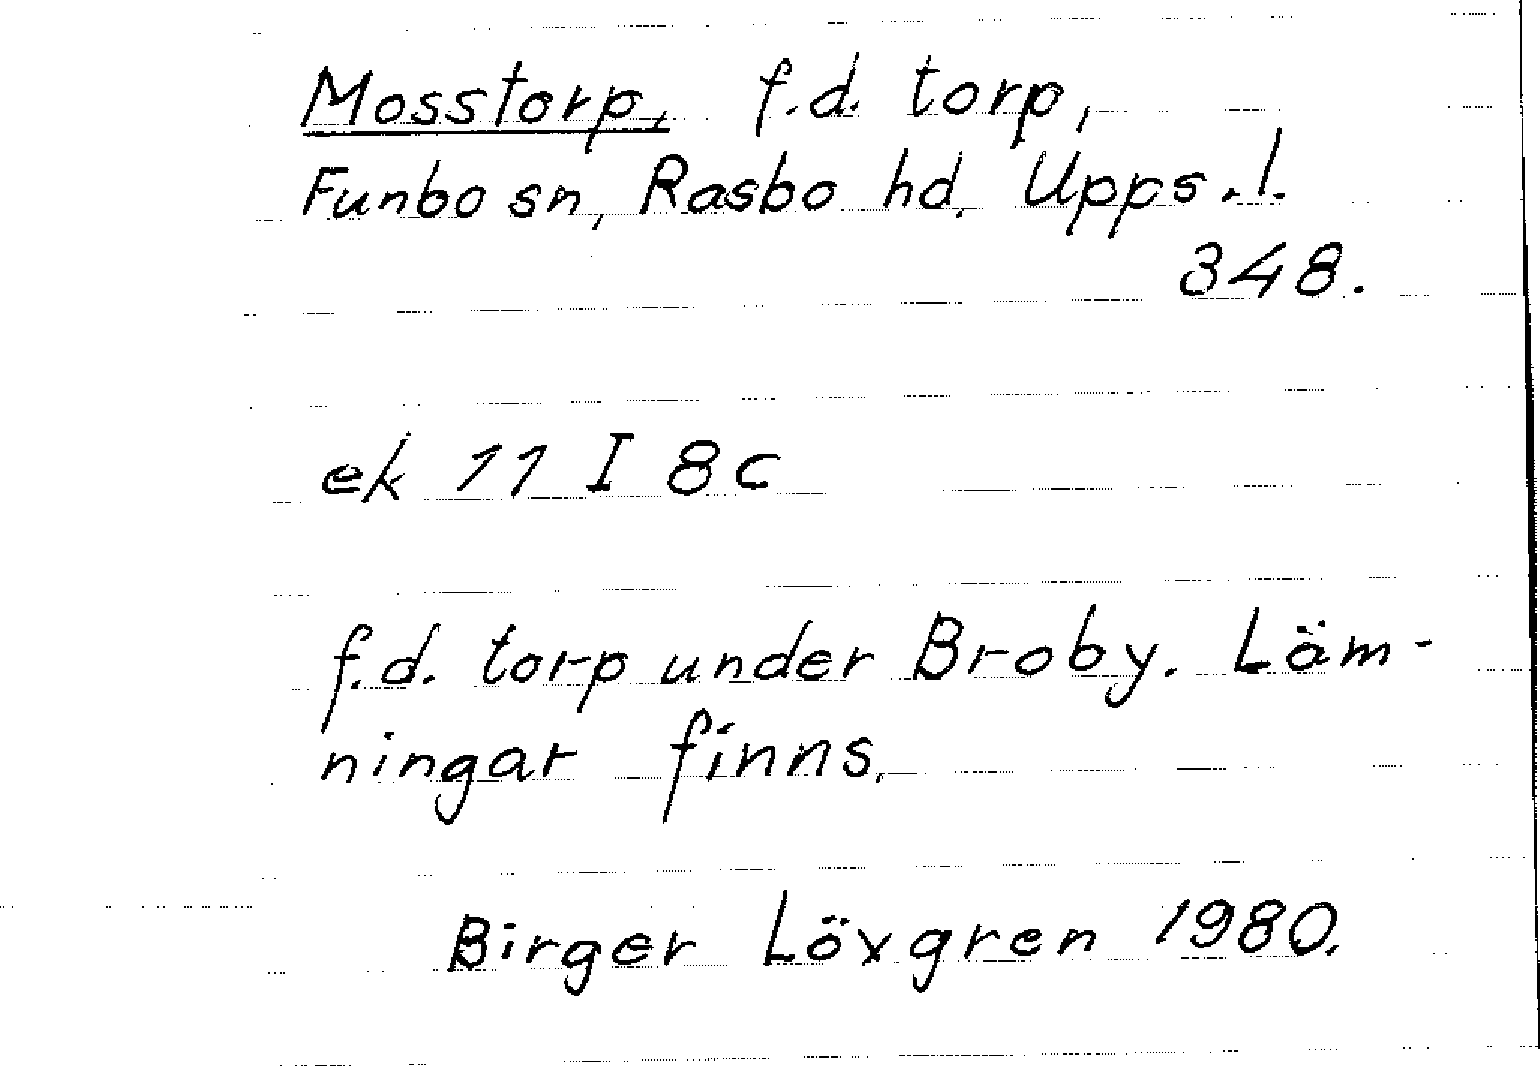 Mosstorp, f.d. torp,
Funbo sn, Rasbo hd, Upps. l.
348.
ek 11 I 8c
f.d. torp under Broby. Läm-
ningar finns.
Birger Lövgren 1980.